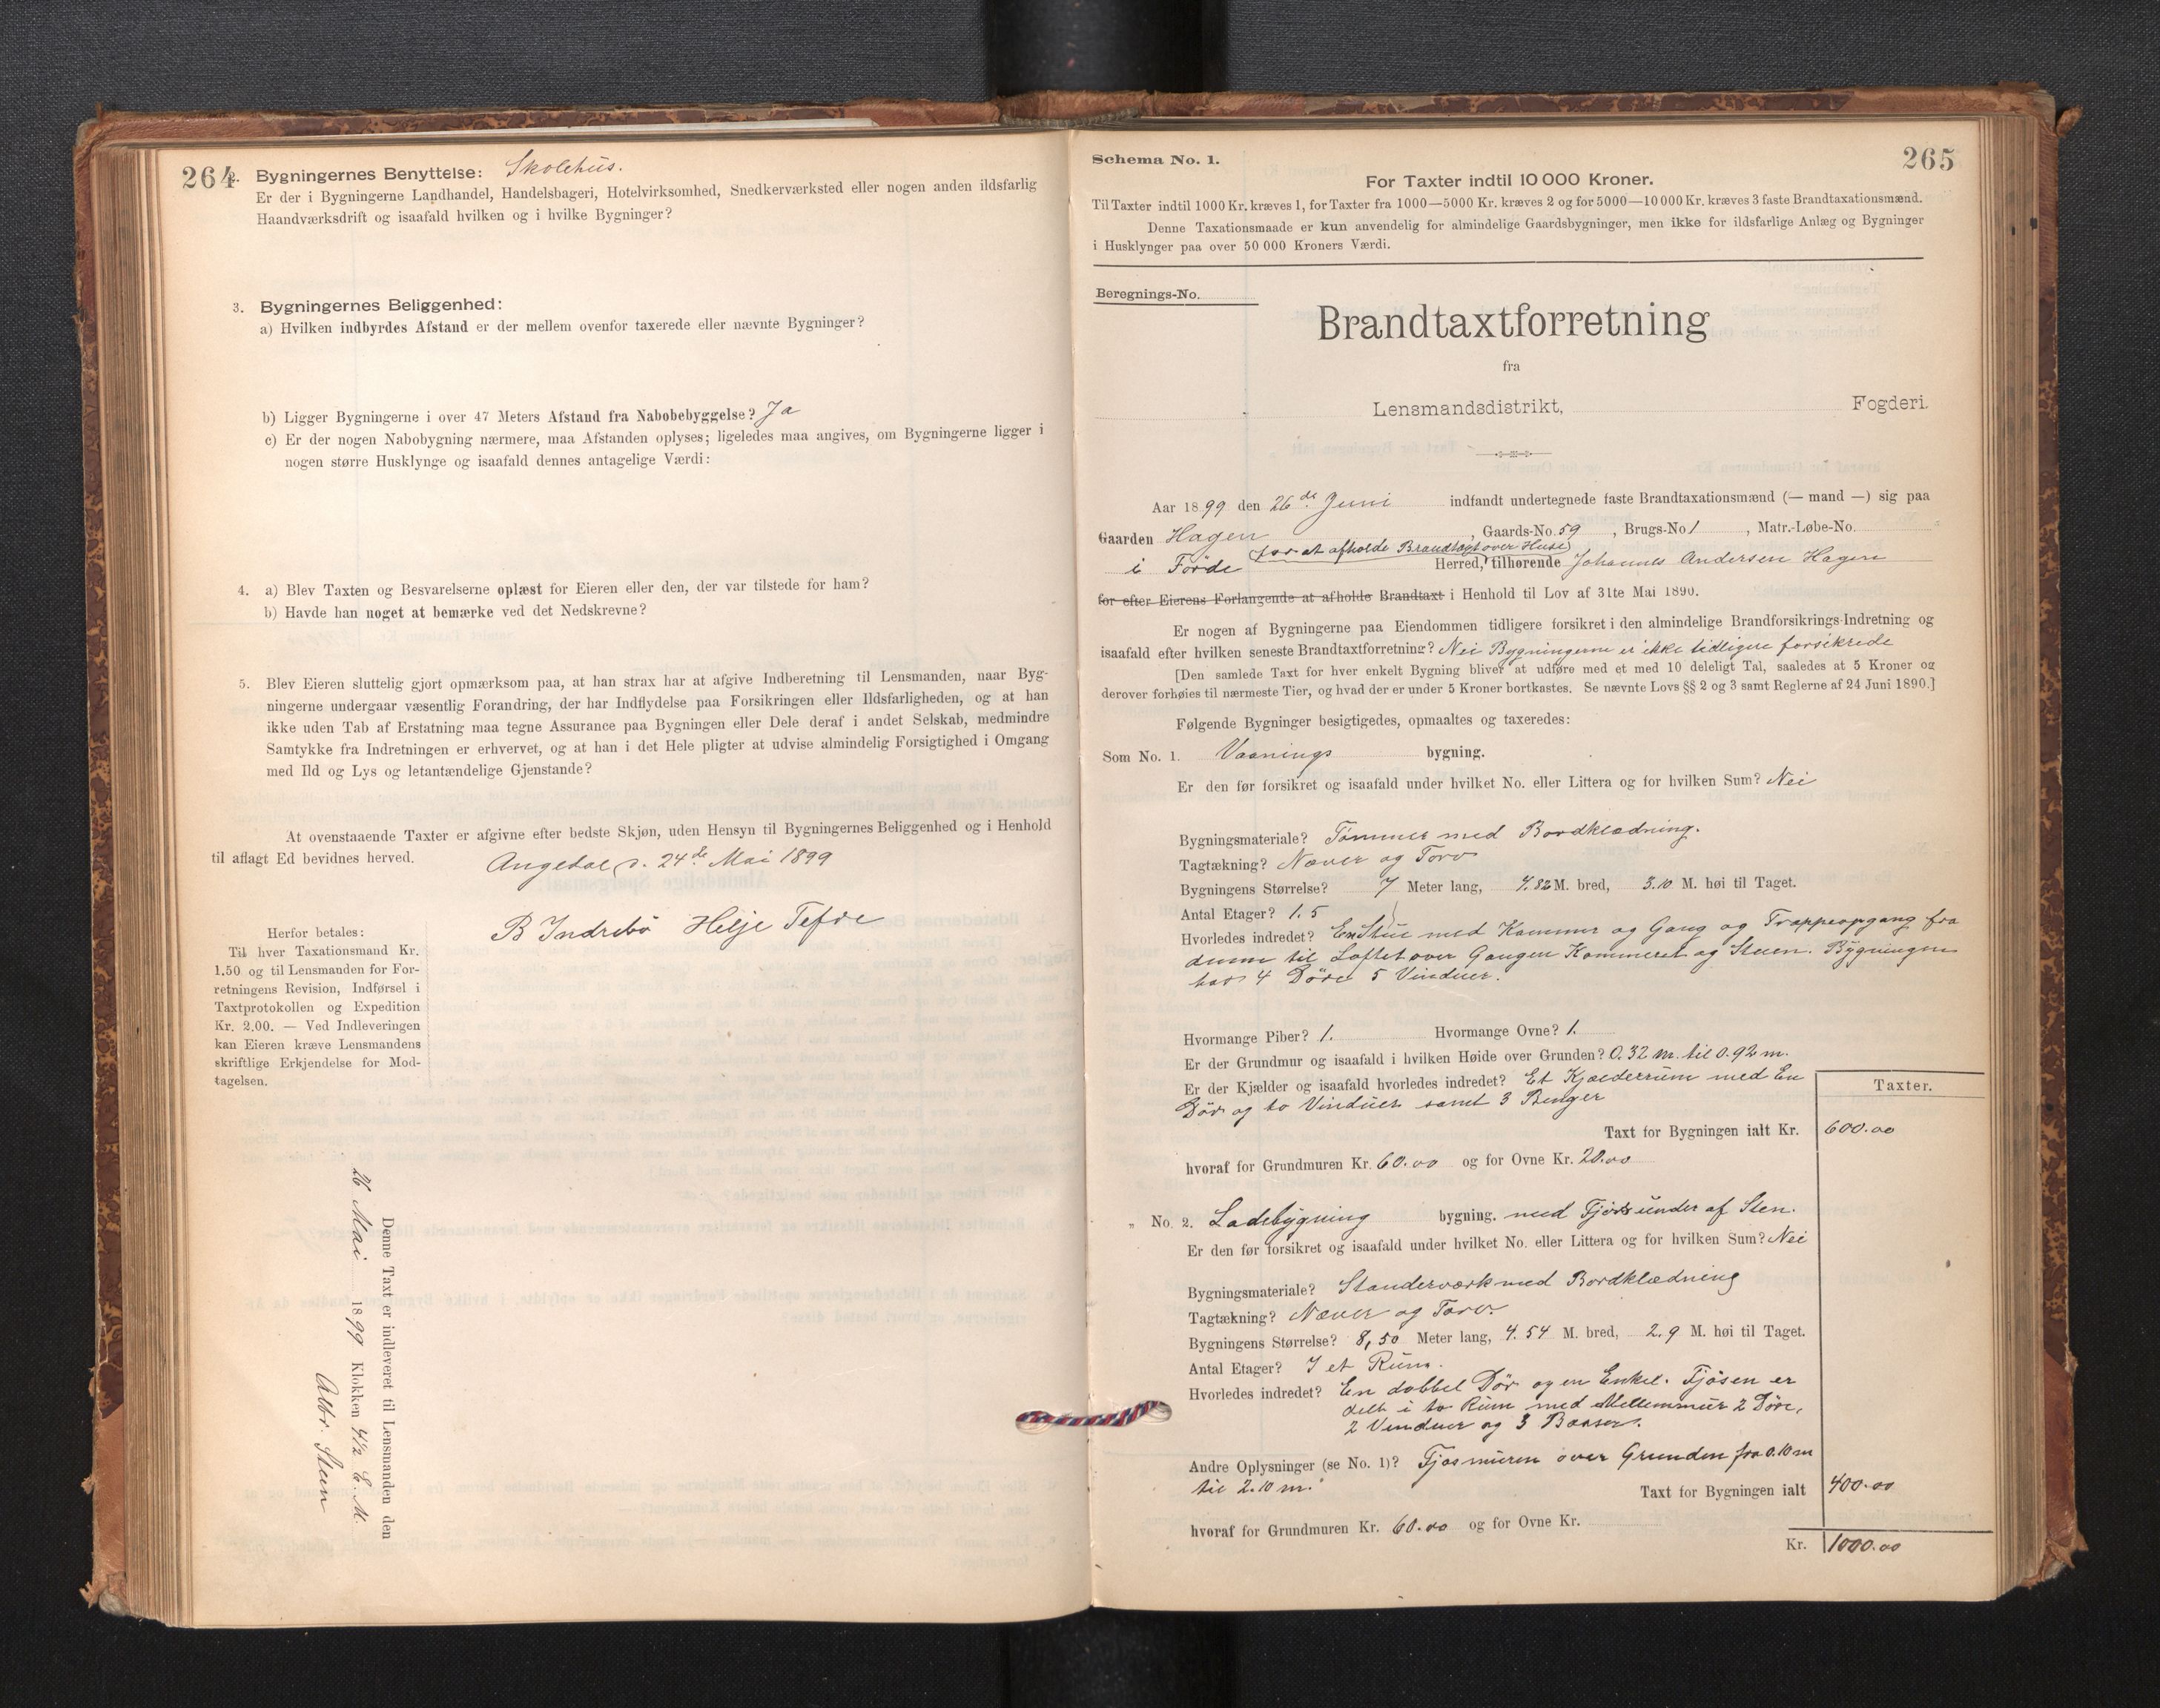 264
2. Bygningernes Benyttelse: Skolehus.
Er der i Bygningerne Landhandel, Handelsbageri, Hotelvirksomhed, Snedkerværksted eller nogen anden ildsfarlig
Haandværksdrift og isaafald hvilken og i hvilke Bygninger?
3. Bygningernes Beliggenhed:
a) Hvilken indbyrdes Afstand er der mellem ovenfor taxerede eller nævnte Bygninger?
b) Ligger Bygningerne i over 47 Meters Afstand fra Nabobebyggelse? Ja
c) Er der nogen Nabobygning nærmere, maa Afstanden oplyses; ligeledes maa angives, om Bygningerne ligger i
nogen større Husklynge og isaafald dennes antagelige Værdi:
4. a) Blev Taxten og Besvarelserne oplæst for Eieren eller den, der var tilstede for ham?
b) Havde han noget at bemærke ved det Nedskrevne?
5. Blev Eieren sluttelig gjort opmærksom paa, at han strax har at afgive Indberetning til Lensmanden, naar Byg-
ningerne undergaar væsentlig Forandring, der har Indflydelse paa Forsikringen eller Ildsfarligheden, og at han
ikke uden Tab af Erstatning maa tegne Assurance paa Bygningen eller Dele deraf i andet Selskab, medmindre
Samtykke fra Indretningen er erhvervet, og at han i det Hele pligter at udvise almindelig Forsigtighed i Omgang
med Ild og Lys og letantændelige Gjenstande?
At ovenstaaende Taxter er afgivne efter bedste Skjøn, uden Hensyn til Bygningernes Beliggenhed og i Henhold
til aflagt Ed bevidnes herved.
Angedal d. 24de Mai 1899
B Indrebö Helje Tefre
Herfor betales:
Til hver Taxationsmand Kr.
1.50 og til Lensmanden for For-
retningens Revision, Indførsel i
Taxtprotokollen og Expedition
Kr. 2.00. — Ved Indleveringen
kan Eieren kræve Lensmandens
skriftlige Erkjendelse for Mod-
tagelsen.
Denne Taxt er indleveret til Lensmanden den
26 Mai 1899 Klokken 4½ E. M.
Albr. Steen
Schema No. 1.
265
For Taxter indtil 10 000 Kroner.
Til Taxter indtil 1000 Kr. kræves 1, for Taxter fra 1000—5000 Kr. kræves 2 og for 5000—10 000 Kr. kræves 3 faste Brandtaxationsmænd.
Denne Taxationsmaade er kun anvendelig for almindelige Gaardsbygninger, men ikke for ildsfarlige Anlæg og Bygninger
i Husklynger paa over 50 000 Kroners Værdi.
Beregnings-No.
Brandtaxtforretning
fra
Lensmandsdistrikt, Fogderi.
Aar 1899 den 26de Juni indfandt undertegnede faste Brandtaxationsmænd (— mand —) sig paa
Gaarden Hagen, Gaards-No. 59, Brugs-No 1, Matr.-Løbe-No.
for at afholde Brandtaxt over Huse
i Förde Herred, tilhørende Johannes Andersen Hagen
for efter Eierens Forlangende at afholde Brandtaxt i Henhold til Lov af 31te Mai 1890.
Er nogen af Bygningerne paa Eiendommen tidligere forsikret i den almindelige Brandforsikrings-Indretning og
isaafald efter hvilken seneste Brandtaxtforretning? Nei Bygningerne er ikke tidligere forsikrede
[Den samlede Taxt for hver enkelt Bygning bliver at udføre med et med 10 deleligt Tal, saaledes at 5 Kroner og
derover forhøies til nærmeste Tier, og hvad der er under 5 Kroner bortkastes. Se nævnte Lovs §§ 2 og 3 samt Reglerne af 24 Juni 1890.]
Følgende Bygninger besigtigedes, opmaaltes og taxeredes:
Som No. 1. Vaanings bygning.
Er den før forsikret og isaafald under hvilket No. eller Littera og for hvilken Sum? Nei
Bygningsmateriale? Tømmer med Bordklædning.
Tagtækning? Næver og Torv
Bygningens Størrelse? 7 Meter lang, 4.82 M. bred, 3.10 M. høi til Taget.
Antal Etager? 1.5
Hvorledes indredet? En Stue med Kammer og Gang og Trappeopgang fra
denne til Loftet over Gangen Kammeret og Stuen. Bygningen
har 4 Döre 5 Vinduer.
Hvormange Piber? 1. Hvormange Ovne? 1.
Er der Grundmur og isaafald i hvilken Høide over Grunden? 0.32 m. til 0.92 m.
Er der Kjælder og isaafald hvorledes indredet? Et Kjælderrum med En
Dör og to Vinduer samt 3 Binger
Taxter.
Taxt for Bygningen ialt Kr. 600.00
hvoraf for Grundmuren Kr. 60.00 og for Ovne Kr. 20.00
„ No. 2. Ladebygning bygning. med Fjös under af Sten.
Er den før forsikret og isaafald under hvilket No. eller Littera og for hvilken Sum? Nei
Bygningsmateriale? Standerværk med Bordklædning
Tagtækning? Næver og Torv.
Bygningens Størrelse? 8,50 Meter lang, 4.54 M. bred, 2.9 M. høi til Taget.
Antal Etager? I et Rum.
Hvorledes indredet? En dobbel Dör og en Enkel. Fjösen er
delt i to Rum med Mellemmur 2 Döre,
2 Vinduer og 3 Baaser.
Andre Oplysninger (se No. 1)? Fjösmuren over Grunden fra 0.10 m
til 2.10 m.
Taxt for Bygningen ialt 400.00
hvoraf for Grundmuren Kr. 60.00 og for Ovne Kr.
Kr. 1000.00